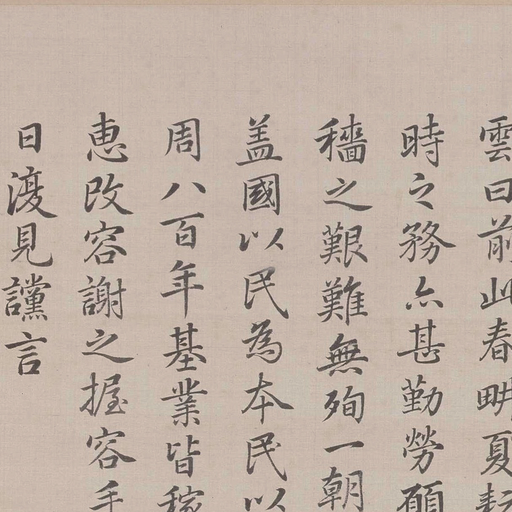 雲曰前此春畊夏耘
時之務亦甚勤勞願
穡之艱難無殉一朝
盖國以民為本民以
周八百年基業皆稼
惠改容謝之握容手
日復見讜言